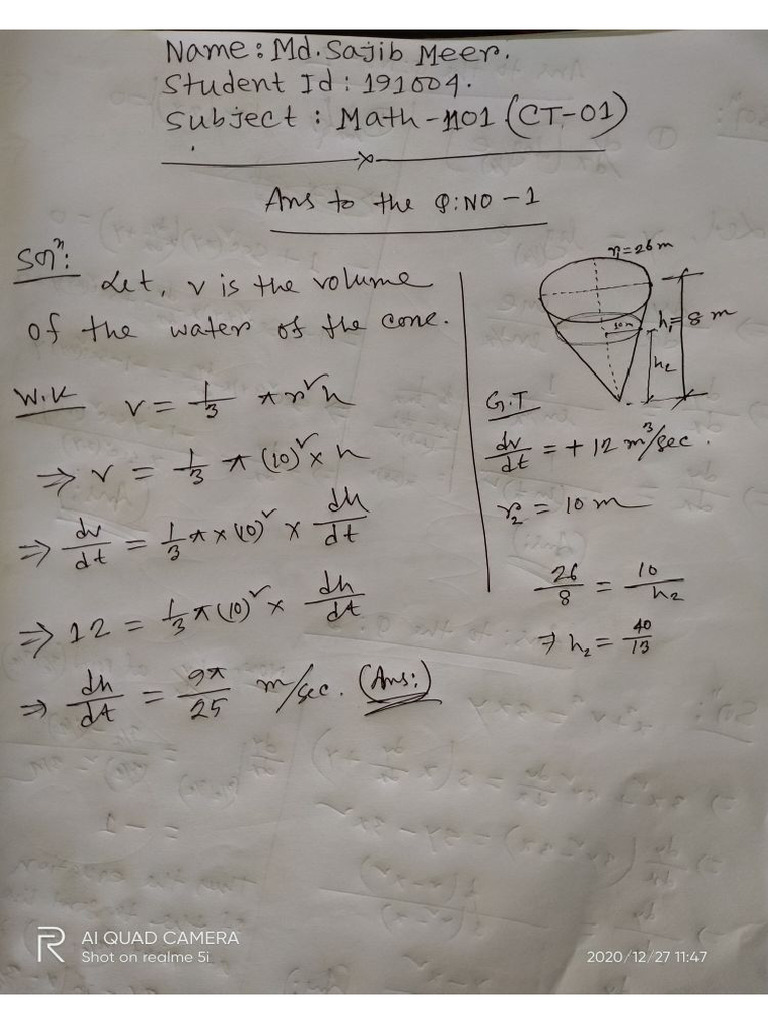 Name: Md. Sajib Meer.
Student Id: 191004.
Subject: Math-1101 (CT-01)
Ans to the Q: NO - 1
Solⁿ:
Let, v is the volume
of the water of the cone.
W.K v = 1/3 πr²h
⇒ v = 1/3 π (10)² × h
⇒ dv/dt = 1/3 π × (10)² × dh/dt
⇒ 12 = 1/3 π (10)² × dh/dt
⇒ dh/dt = 9π/25 m/sec. (Ans:)
r₁ = 26 m
10 m
h₁ = 8 m
h₂
G.T
dv/dt = + 12 m³/sec.
r₂ = 10 m
26/8 = 10/h₂
⇒ h₂ = 40/13
AI QUAD CAMERA
Shot on realme 5i
2020/12/27 11:47